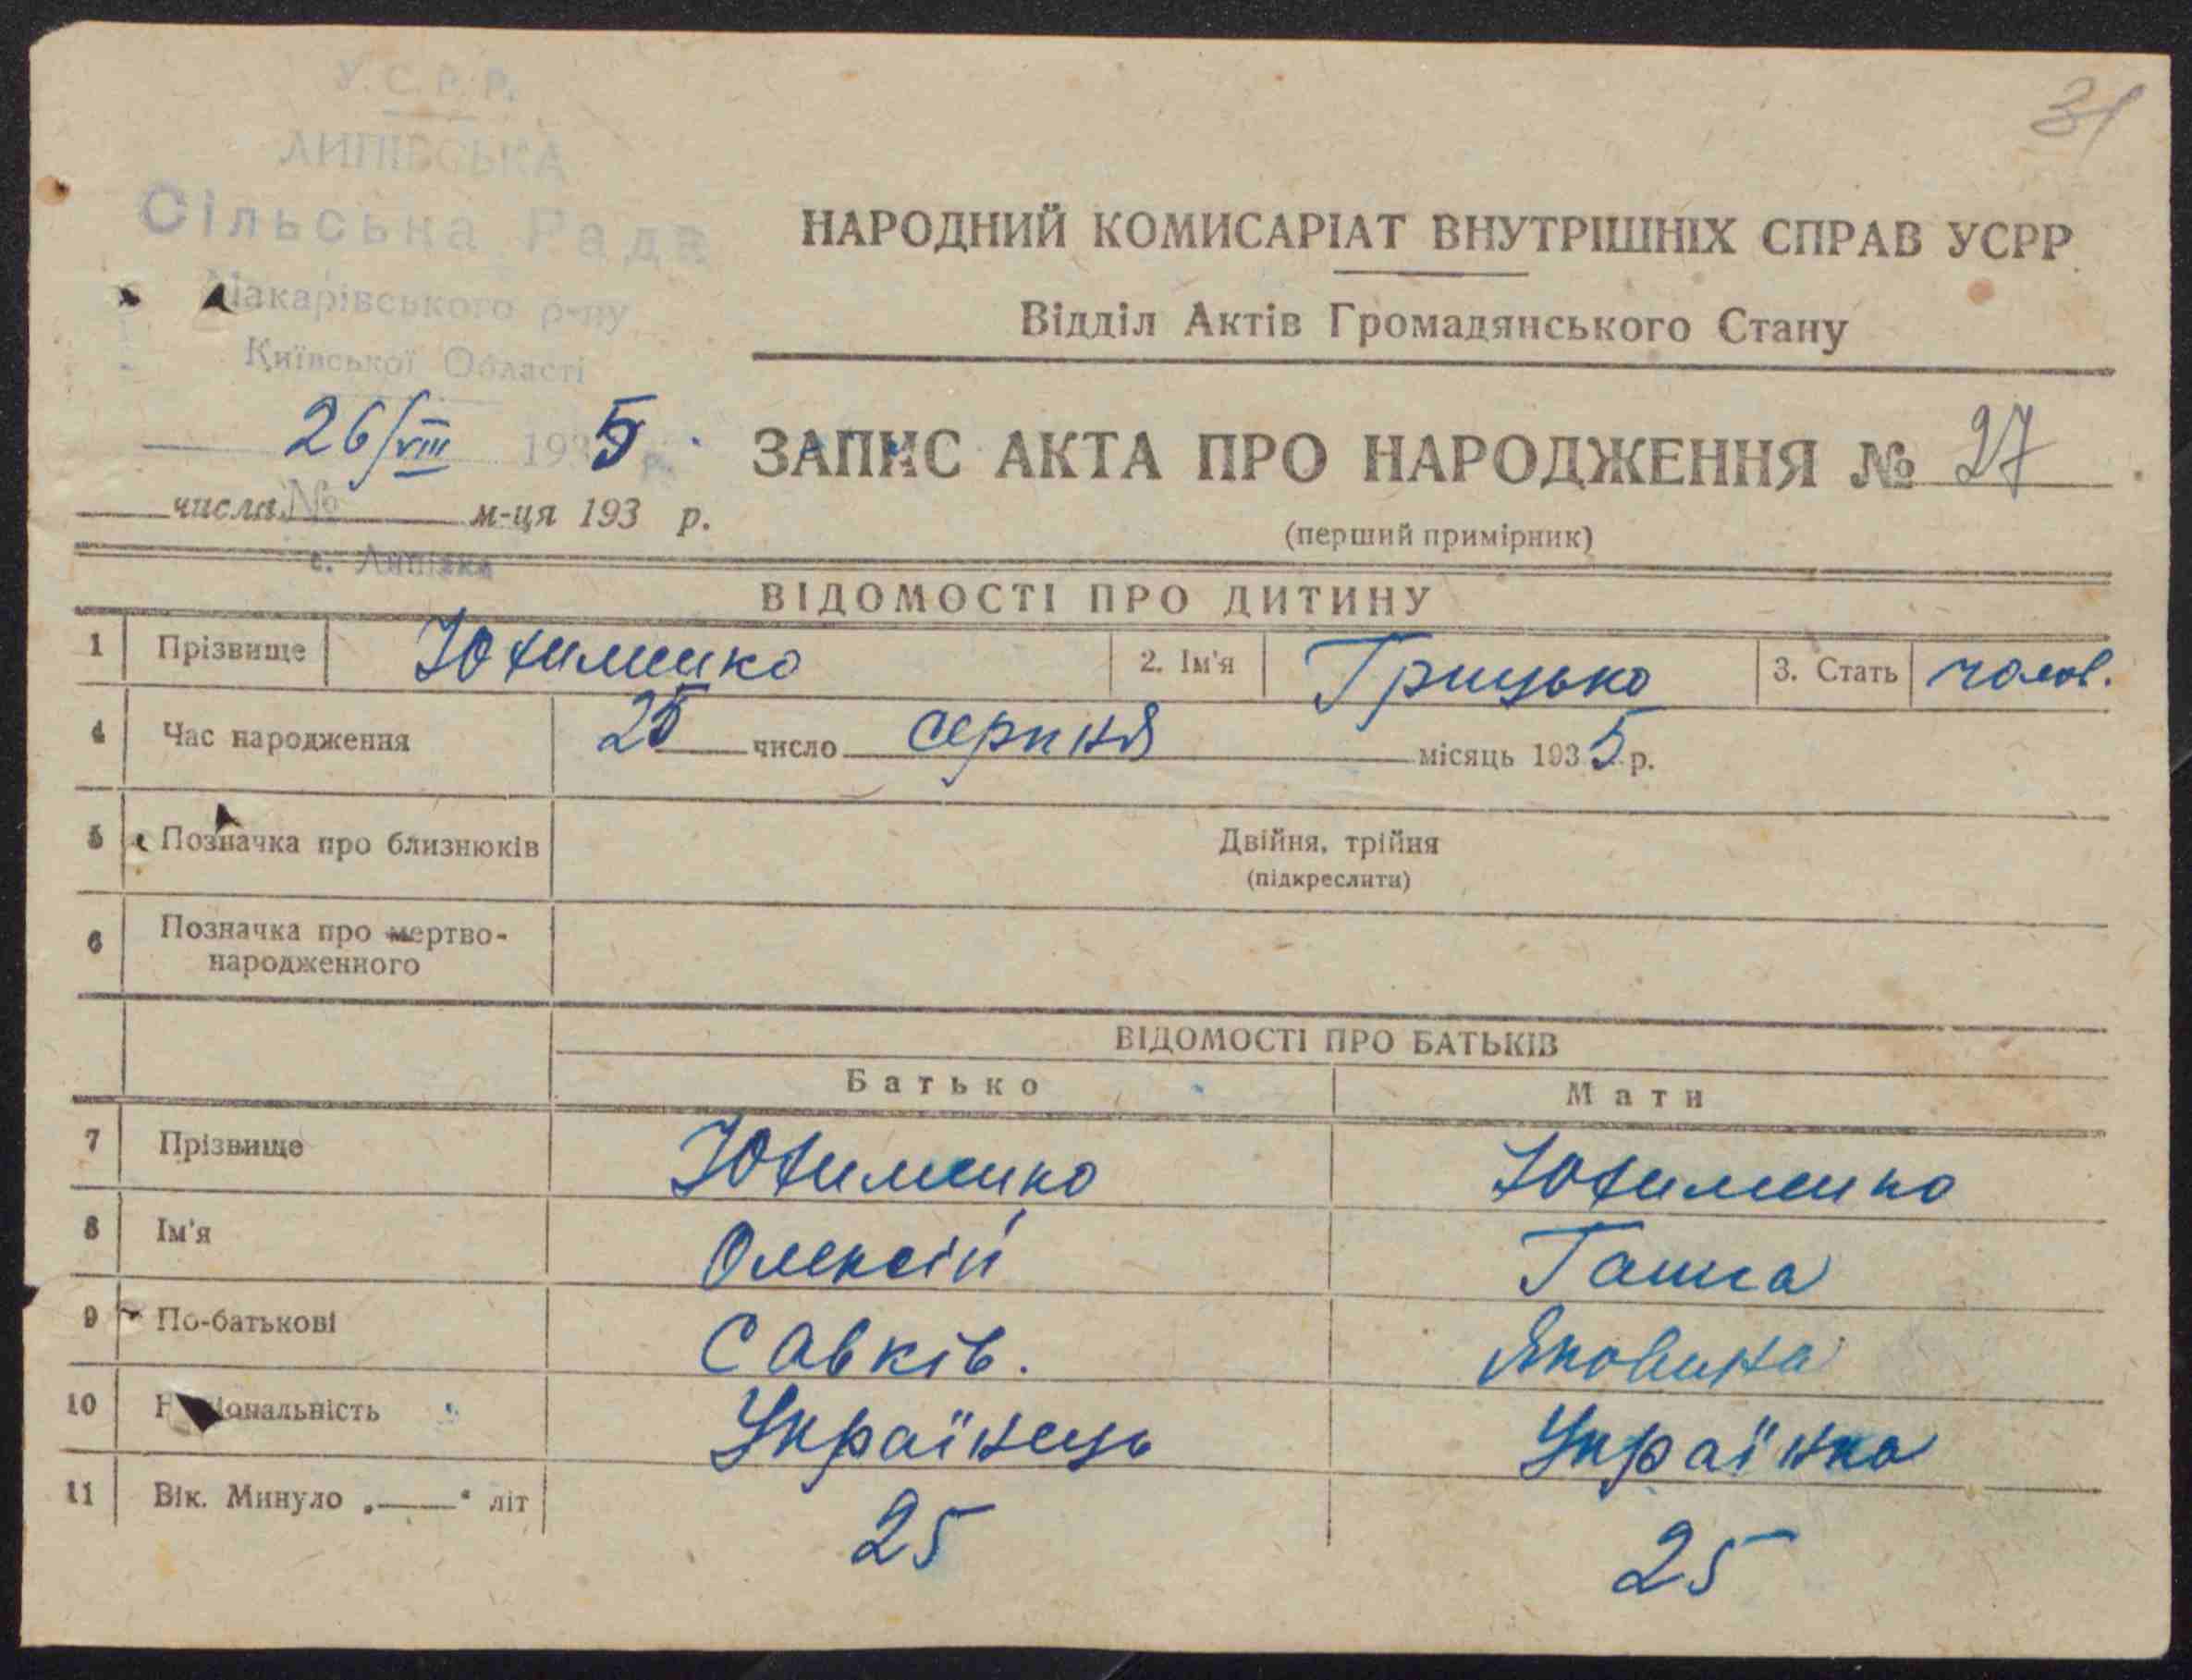 У.С.Р.Р.
31
ЛИПІВСЬКА
Сільська Рада
НАРОДНИЙ КОМИСАРІАТ ВНУТРІШНІХ СПРАВ УСРР
Макарівського р-ну
Відділ Актів Громадянського Стану
Київської Області
26/VIII 1935 р.
ЗАПИС АКТА ПРО НАРОДЖЕННЯ № 27
числа № м-ця 193 р.
(перший примірник)
с. Липівка
ВІДОМОСТІ ПРО ДИТИНУ
1 Прізвище Юхименко 2. Ім'я Грицько 3. Стать чолов.
4 Час народження 25 число серпня місяць 1935 р.
5 Позначка про близнюків Двійня, трійня
(підкреслити)
6 Позначка про мертво-
народженного
ВІДОМОСТІ ПРО БАТЬКІВ
Батько Мати
7 Прізвище Юхименко Юхименко
8 Ім'я Олексій Ганна
9 По-батькові Савків. Яковина
10 Національність Українець Українка
11 Вік. Минуло „ “ літ 25 25